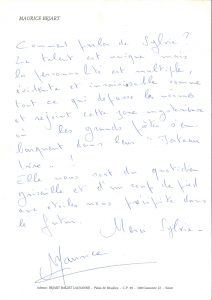 MAURICE BEJART
Comment parler de Sylvie ?
Le talent est unique mais
la personnalité est multiple,
évidente et insaisissable comme
tout ce qui dépasse les normes
et rejoint cette zone mystérieuse
où les grands poètes s'em
barquent dans leur "Bateau
ivre" !
Elle nous sort du quotidien
grisaille et d'un coup de pied
aux étoiles nous précipite dans
le futur.
Merci Sylvie -
Maurice
Adresse: BEJART BALLET LAUSANNE - Palais de Beaulieu - C.P. 25 - 1000 Lausanne 22 - Suisse